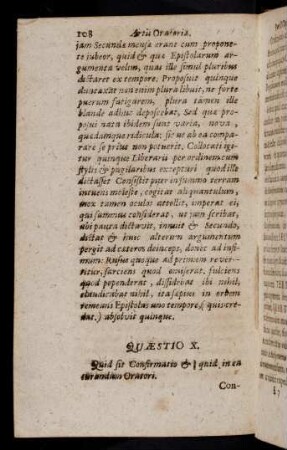 108 Artis Oratoriæ.
jam Secunda mensa erant cum propone-
re iubeor, quid & que Epistolarum ar-
gumenta velim, quas illo simul pluribus
dictaret ex tempore. Proposui quinque
duntaxat non enim plura libuit, ne forte
puerum fatigarem, plura tamen ille
blande adhuc deposcebat, Sed quæ pro-
posui nata ibidem sunt varia, nova,
quædamque ridicula: sic ut ab ea compara-
re se prius non potuerit. Collocati igi-
tur quinque Librarii per ordinem cum
stylis & pugillaribus excepturi quod ille
dictasset Consistit puer in summo terram
intueri moleste, cogitat aliquantulum,
mox tamen oculos attollit, imperat ei,
qui summus considerat, ut jam scribat,
ubi pauca dictavit, innuit & Secundo,
dictat & huic alterum argumentum
pergit ad cæteros deinceps, donec ad infi-
mum: Rursus quoque ad primum rever-
titur, sarciens quod omiserat, fulciens
quod pependerat, dissidebat ibi nihil,
claudicabat nihil, ita sæpius in orbem
remeans Epistolas uno tempore, (quis cre-
dat.) absolvit quinque.
QUÆSTIO X.
Quid sit Confirmatio & quid, in ea
curandum Oratori.
Con-